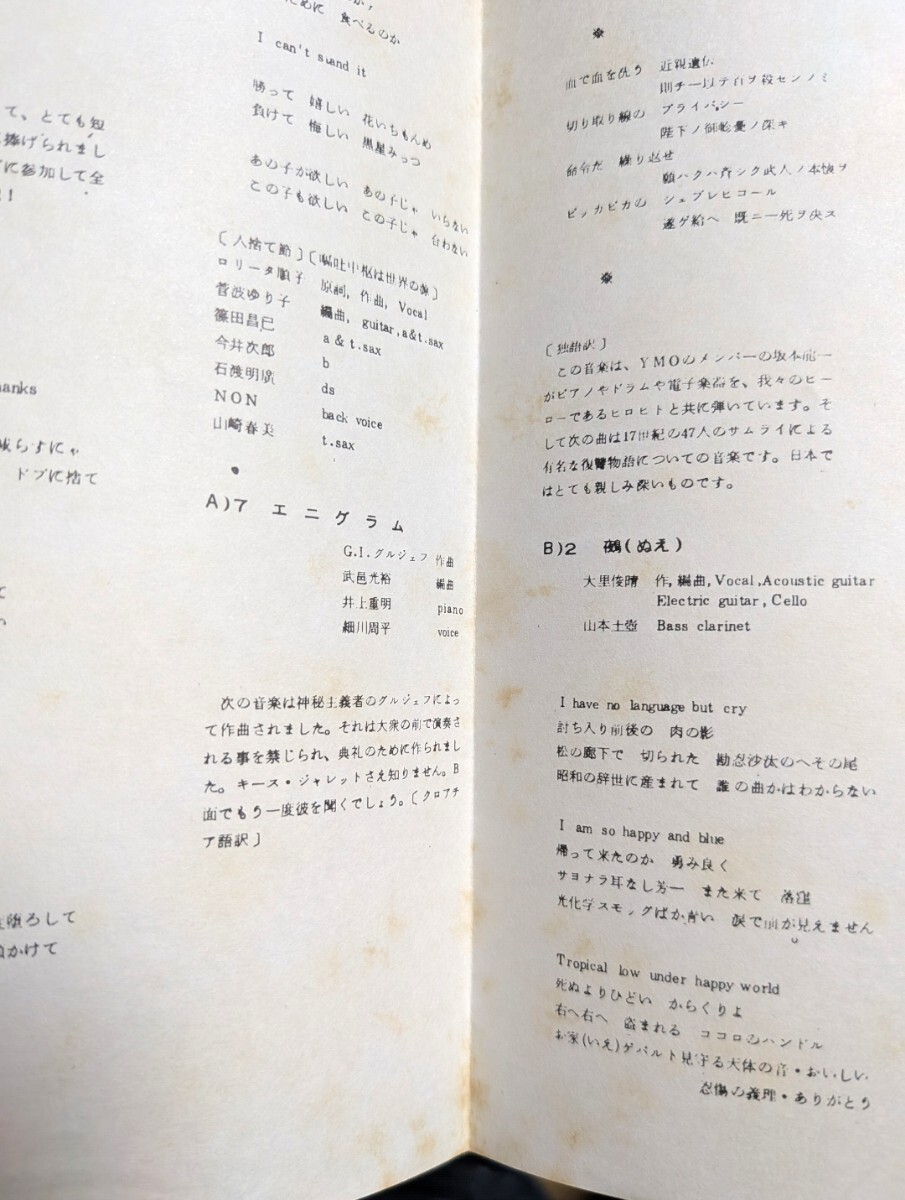 ために 食べるのか
I can't stand it
勝って 嬉しい 花いちもんめ
負けて 悔しい 黒星みっつ
あの子が欲しい あの子じゃ いらない
この子も欲しい この子じゃ 合わない
〔人捨て節〕〔嘔吐中枢は世界の錬〕
ロリータ順子 原詞,作曲,Vocal
菅波ゆり子 編曲,guitar,a&t.sax
篠田昌已 a & t.sax
今井次郎 b
石渡明廣 ds
NON back voice
山崎春美 t.sax
A)7 エニグラム
G.I.グルジェフ 作曲
武邑光裕 編曲
井上重明 piano
細川周平 voice
次の音楽は神秘主義者のグルジェフによっ
て作曲されました。それは大衆の前で演奏さ
れる事を禁じられ、典礼のために作られまし
た。キース・ジャレットさえ知りません。B
面でもう一度彼を聞くでしょう。〔クロアチ
ア語訳〕
て、とても短
捧げられまし
に参加して全
!
hanks
減らすにゃ
ドブに捨て
て
堕ろして
かけて
※
血で血を洗う 近親遺伝
切り取り線の プライバシー
陛下ノ御軫憂ノ深キ
命令だ 繰り返せ
願ハクハ斉シク武人ノ本懐ヲ
ピッカピカの シュプレヒコール
遂ゲ給ヘ 既ニ一死ヲ決ス
※
〔独語訳〕
この音楽は、YMOのメンバーの坂本龍一
がピアノやドラムや電子楽器を、我々のヒー
ローであるヒロヒトと共に弾いています。そ
して次の曲は17世紀の47人のサムライによる
有名な復讐物語についての音楽です。日本で
はとても親しみ深いものです。
B)2 鵺(ぬえ)
大里俊晴 作,編曲,Vocal,Acoustic guitar
Electric guitar, Cello
山本土壺 Bass clarinet
I have no language but cry
討ち入り前後の 肉の影
松の廊下で 切られた 勘忍沙汰のへその尾
昭和の辞世に産まれて 誰の曲かはわからない
I am so happy and blue
帰って来たのか 勇み良く
サヨナラ耳なし芳一 また来て 落窪
光化学スモッグばか青い 涙で前が見えません
Tropical low under happy world
死ぬよりひどい からくりよ
右へ右へ 盗まれる ココロのハンドル
お家(いえ)ゲバルト見守る天体の音・おいしい
忍傷の義理・ありがとう